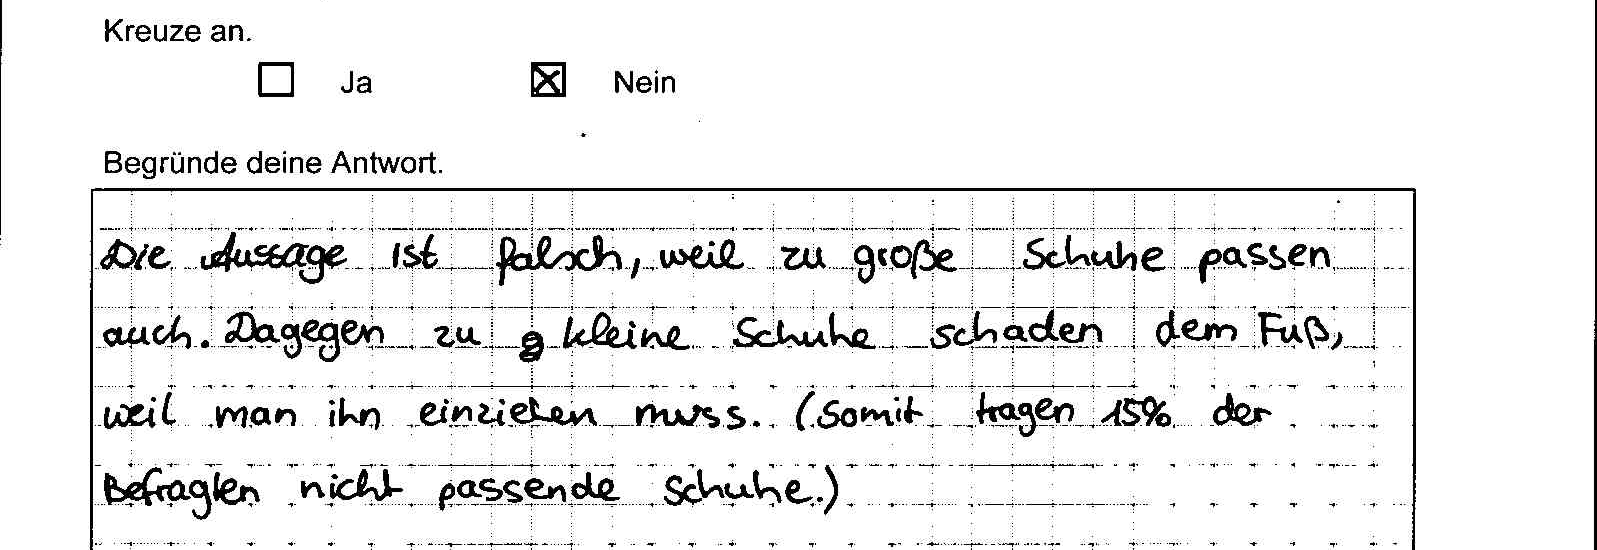 Kreuze an.
Ja Nein
Begründe deine Antwort.
Die Aussage ist falsch, weil zu große Schuhe passen
auch. Dagegen zu kleine Schuhe schaden dem Fuß,
weil man ihn einziehen muss. (Somit tragen 15% der
Befragten nicht passende Schuhe.)